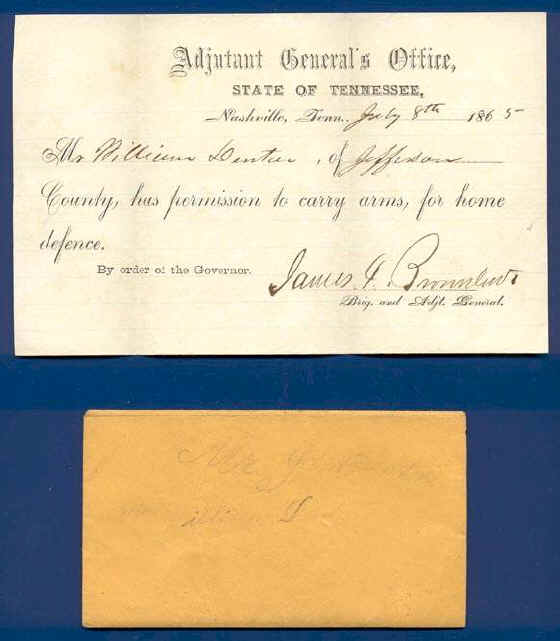 Adjutant General's Office,
STATE OF TENNESSEE,
Nashville, Tenn., July 8th 1865
Mr William , of Jefferson
County, has permission to carry arms, for home
defence.
By order of the Governor.
James P. Brownlow
Brig. and Adjt. General.
Mr
William D